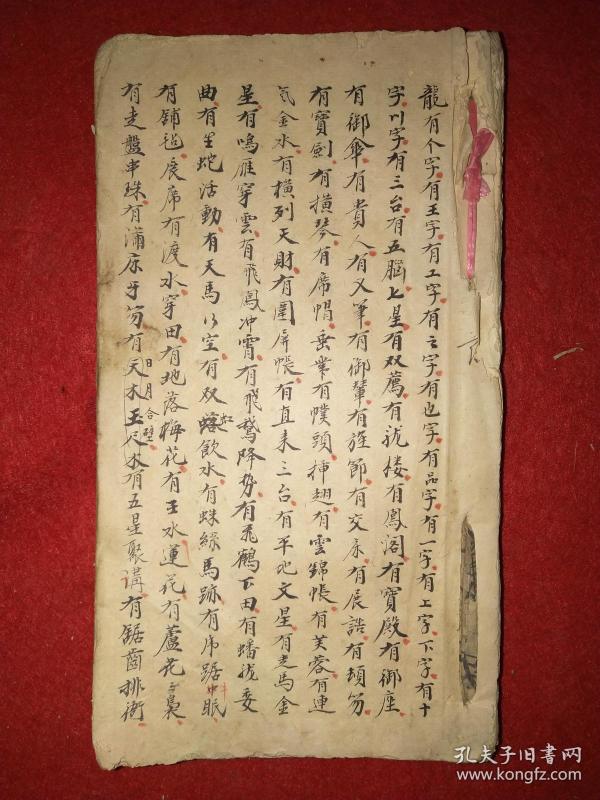 龍有个字有王字有工字有之字有也字有品字有一字有上字下字有十
字川字有三台有五腦七星有双薦有龍楼有鳳阁有寶殿有御座
有御傘有貴人有文筆有御輦有旌節有交床有展誥有頓笏
有寶劍有橫琴有席帽垂業有幞頭挿翅有雲錦帳有芙蓉有連
氣金水有橫列天財有圍屏帳有直来三台有平地文星有走馬金
星有鳴雁穿雲有飛鳳冲霄有飛鵞降势有飛鶴下田有蟠龍委
曲有生蛇活動有天馬行空有双虹飲水有蛛絲馬跡有虎踞中眠
有鋪毡展席有渡水穿田有地落梅花有玉水蓮花有蘆花
有走盤串珠有滿床牙笏有日月合璧有五星聚講有鋸齒排衙
孔夫子旧書网
www.kongfz.com